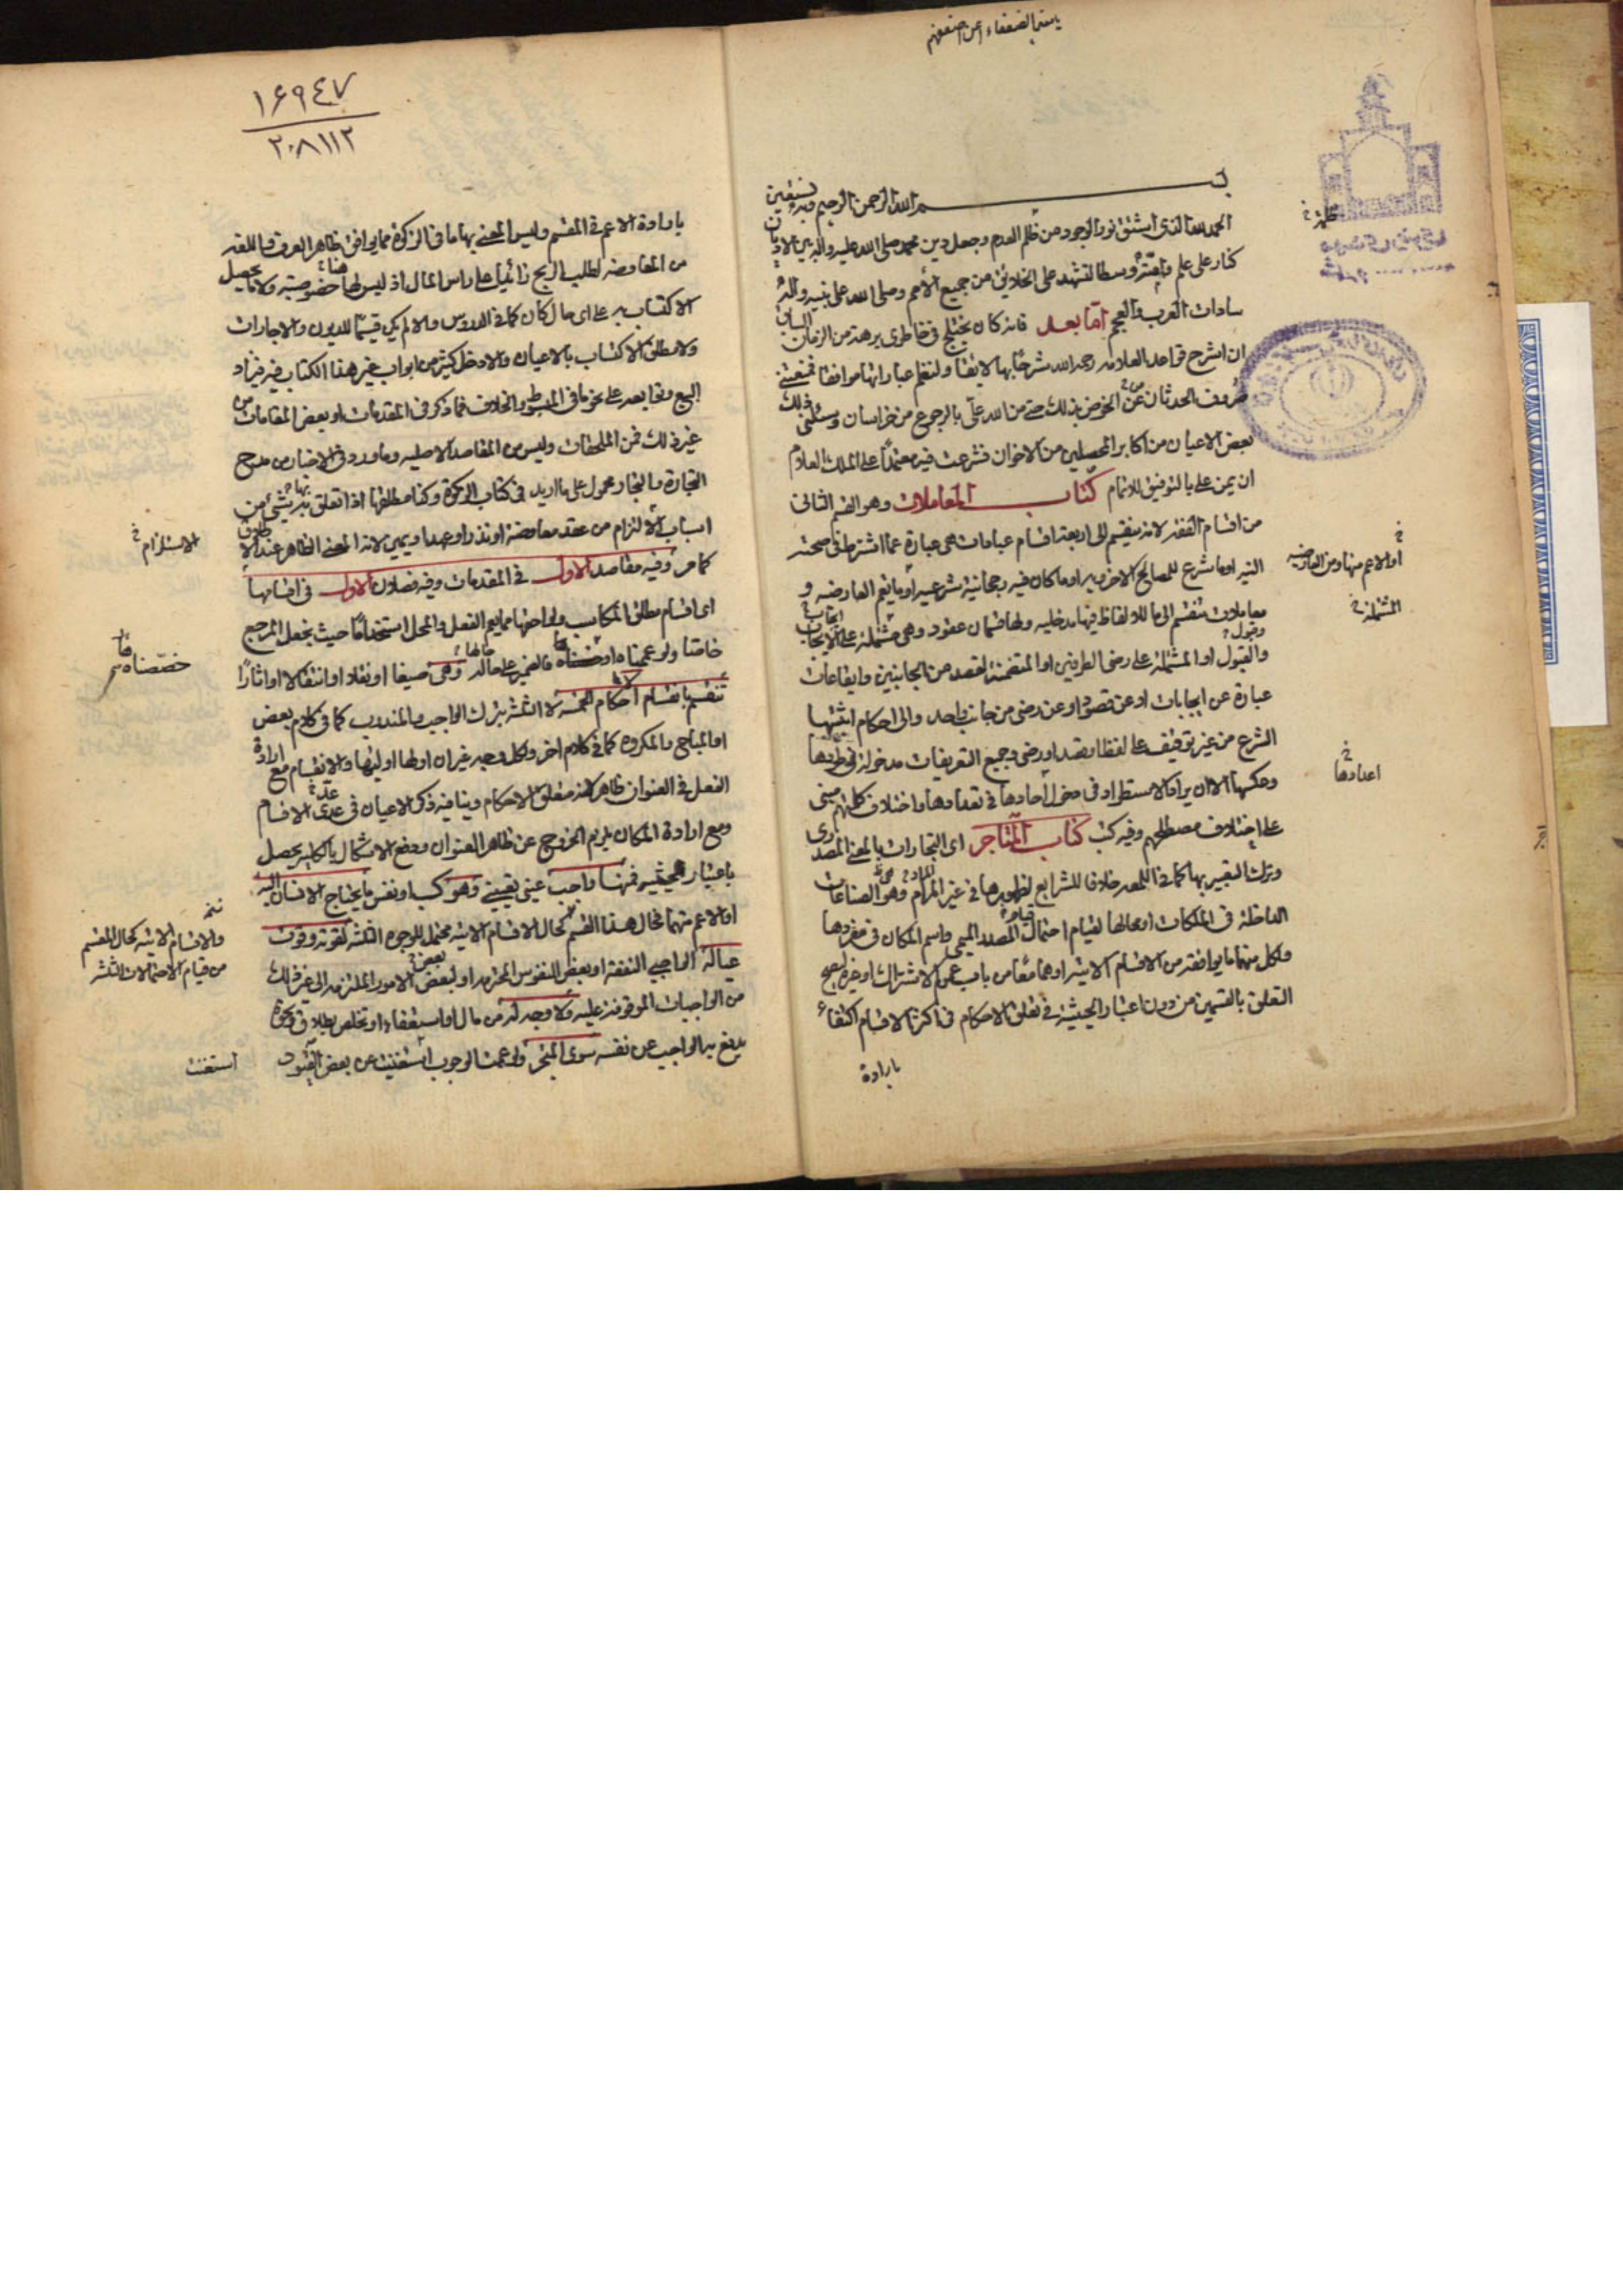 بسم الله الرحمن الرحيم وبه نستعين
الحمد لله الذي اشتق نور الوجود من ظلم العدم وجعل دين محمد صلى الله عليه واله بين الاديان
كنار على علم وامته وسطا لتشهد على الخلايق من جميع الأمم وصلى الله على نبيه واله
سادات العرب والعجم امّا بعد فانه كان يختلج في خاطري برهة من الزمان السابق
ان اشرح قواعد العلامه رحمه الله شرحًا بها لايقا ولنظم عباراتها موافقا فمنعتني
صروف الحدثان عن الخوض بذلك حتى من الله علي بالرجوع من خراسان وسئلني ذلك
بعض الاعيان من اكابر المحصلين من الاخوان فشرعت فيه معتمدًا على الملك العلام
ان يمن علي بالتوفيق للاتمام كتاب المعاملات وهو القسم الثاني
من اقسام الفقه لانه ينقسم الى اربعة اقسام عبادات هي عبارة عما اشترط في صحته
النيه او ما شرع للمصالح الاخرويه او ما كان فيه رجحانية شرعيه او ما يعم العارضه و
معاملات تنقسم الى ما للالفاظ فيها مدخليه ولها قسمان عقود وهي مشتملة على الايجاب
والقبول او المشتملة على رضى الطرفين او المتضمنة لقصد من الجانبين وايقاعات
عبارة عن ايجابات او عن قصود او عن رضى من جانب واحد والى احكام اثبتها
الشرع من غير توقيف على لفظ او قصد او رضى وجميع التعريفات مدخولة في طردها
وعكسها الا ان يراد الاستطراد في دخول آحادها في تعدادها واختلاف كلمتهم مبني
على اختلاف مصطلحهم وفيه كتب كتاب المتاجر اي التجارات بالمعنى المصدري
وترك التعبير بها كما في اللمعه خلاف للشرايع لظهورها في غير المرام وهو الصناعات
الداخلة في الملكات او محالها لقيام احتمال المصدر الميمي واسم المكان في مفردها
ولكل منهما ما يوافقه من الاقسام الاتيه او هما معًا من باب عموم الاشتراك او غيره ليصح
التعلق بالقسمين من دون اعتبار الحيثية في تعلق الاحكام في اكثر الاقسام اكتفاء
بارادة
اعدادها
المشتملة
١۶٩٤٧
٢٠٨١١٢
بارادة الاعم في المقسم وليس المعني بها ما في الزكوة مما يوافق ظاهر العرف واللغه
من المعاوضه لطلب الربح زائدًا على راس المال اذ ليس لها هنا خصوصية ولا ما يحصل
الاكتساب به على اي حال كان كما في الدروس والا لم يكن قسيمًا للديون والاجارات
ولا مطلق الاكتساب بالاعيان والا دخل كثير من ابواب غير هذا الكتاب فيه فيراد
البيع وما بعد على نحو ما في المبسوط والخلاف فما ذكر في المقدمات او بعض المقامات من
غير ذلك فمن الملحقات وليس من المقاصد الاصليه وما ورد في الاخبار من مدح
التجارة والتجار محمول على ما اريد في كتاب الزكوة وكذا مطلقها اذا تعلق بها شيء من
اسباب الالزام من عقد معاوضة او نذر او عهد او يمين لانه المعنى الظاهر عند الاطلاق
كما مر وفيه مقاصد الاول في المقدمات وفيه فصلان الاول في اقسامها
اي اقسام مطلق المكاسب ولواحقها مما يعم الفعل والمحل استخدامًا حيث نجعل المرجع
خاصّا ولو عممناه او خصصناه فالضمير على حاله وهي صيغا او نقلا او انتقالا او اثارًا
تنقسم بانقسام احكام الخمسة لا الثلثة بترك الواجب والمندوب كما في كلام بعض
او المباح والمكروه كما في كلام اخر ولكل وجه غير ان اولها اوليها والانقسام مع ارادة
الفعل في العنوان ظاهر لانه متعلق الاحكام وينافيه ذكر الاعيان في عدة الاقسام
ومع ارادة المكان يلزم الخروج عن ظاهر العنوان ودفع الاشكال بالكليه يحصل
باعتبار الحيثيه فمنها واجب عيني تعييني وهو كسب او نفس ما يحتاج الانسان اليه
او الاعم منهما فحال هذا القسم كحال الاقسام الاتيه محتمل للوجوه الثلثه لقوته وقوت
عياله الواجبي النفقة او بعض النفوس المحترمه او لبعض الامور الملتزمه الى غير ذلك
من الواجبات الموقوفة عليه ولا وجه له من مال او استعفاء او تخلص بطلاق ونحوه
يدفع به الواجب عن نفسه سوى المتجر ولو عممت الوجوب استغنيت عن بعض القيود
الاستلزام
خصّصناه
والاقسام الاتيه كحال المقسم
من قيام الاحتمالات الثلثه
استغنت